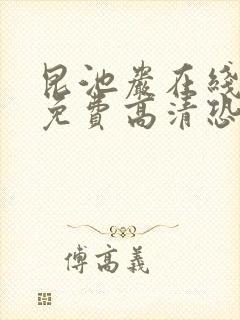 昆池岩在綫
免費高清恐
傅高義